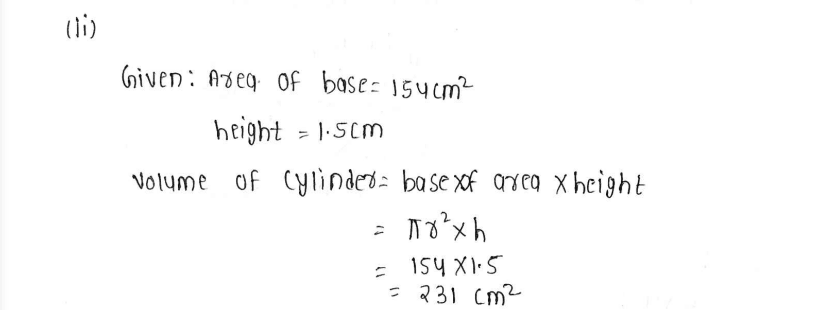 (ii)
Given: Area of base = 154 cm²
height = 1.5cm
Volume of cylinder = base of area x height
= πr² x h
= 154 X 1.5
= 231 cm²